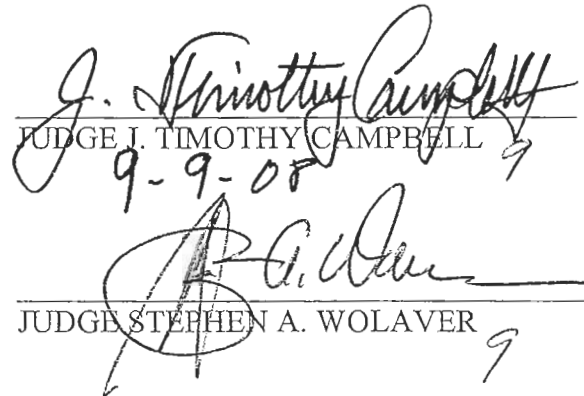 J. Timothy Campbell
JUDGE J. TIMOTHY CAMPBELL 9
9-9-08
A. Wolaver
JUDGE STEPHEN A. WOLAVER
9